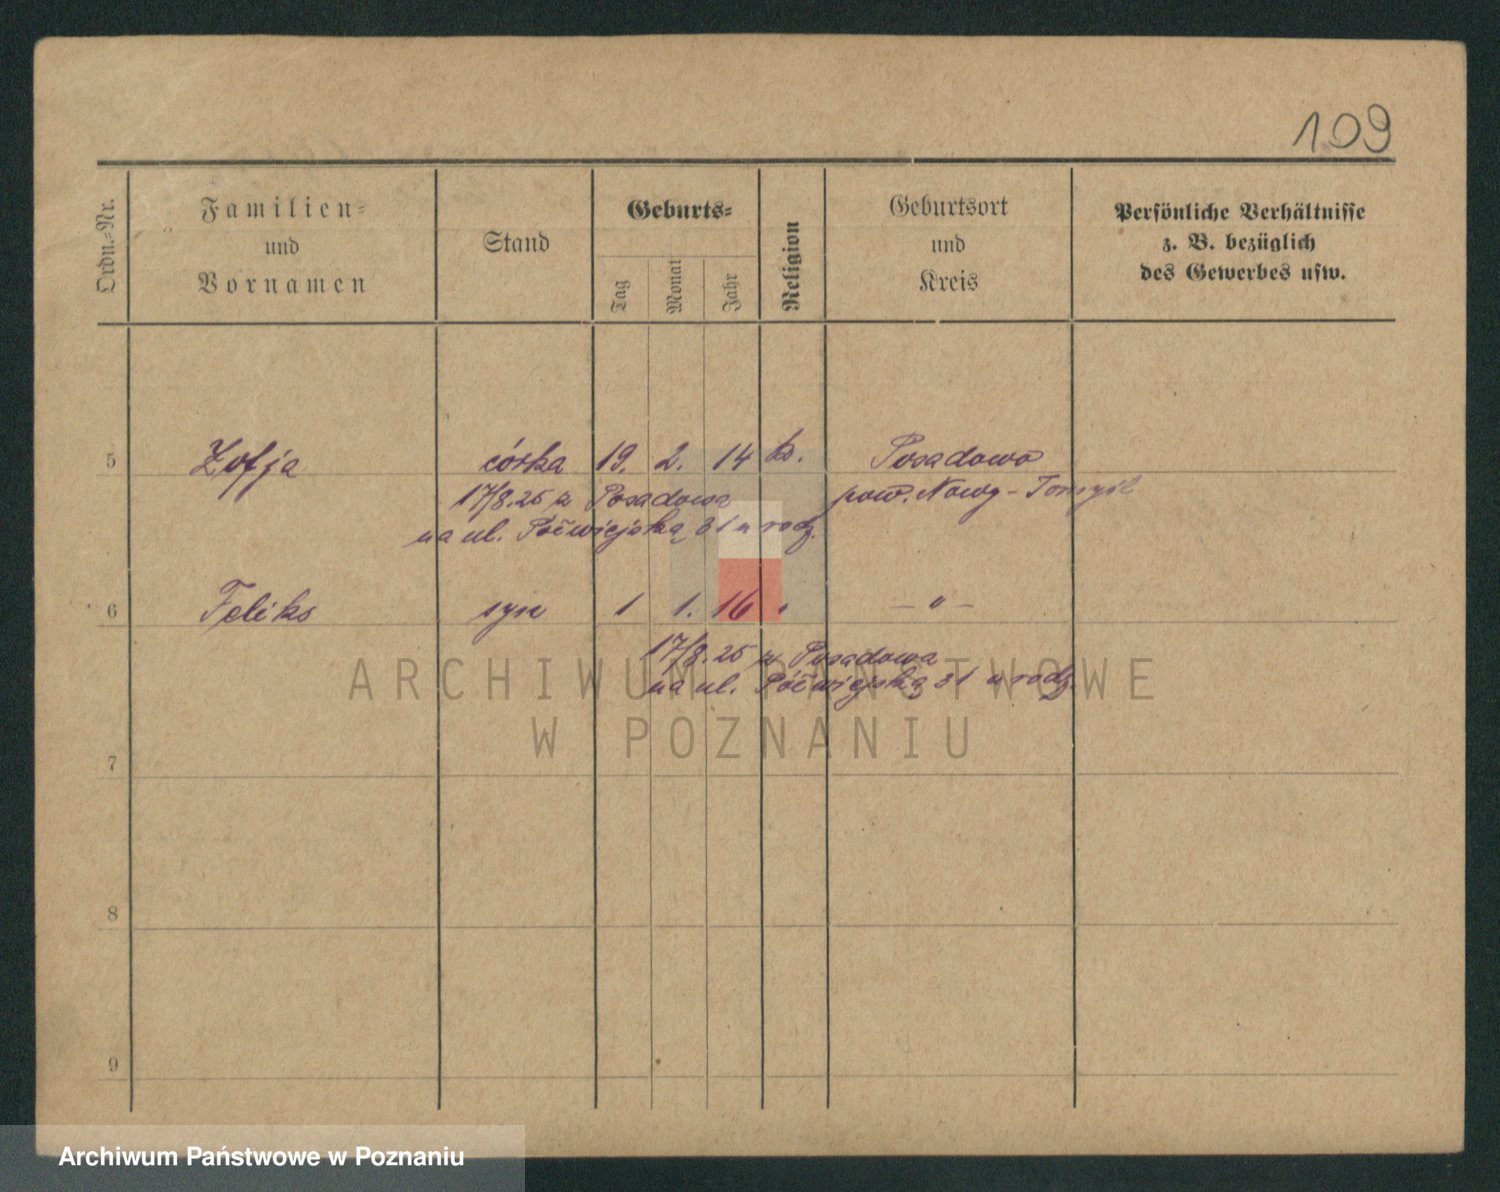 109
Ordn.-Nr.
Familien-
und
Vornamen
Stand
Geburts-
Tag
Monat
Jahr
Religion
Geburtsort
und
Kreis
Persönliche Verhältnisse
z. B. bezüglich
des Gewerbes usw.
5 Zofja córka 19. 2. 14 k. Posadowo
17/8.25 z Posadowa pow. Nowy-Tomyśl
na ul. Półwiejską 31 u rodz.
6 Feliks syn 1 1. 16 " — " —
17/8.25 z Posadowa
na ul. Półwiejską 31 u rodz.
ARCHIWUM PAŃSTWOWE
W POZNANIU
7
8
9
Archiwum Państwowe w Poznaniu